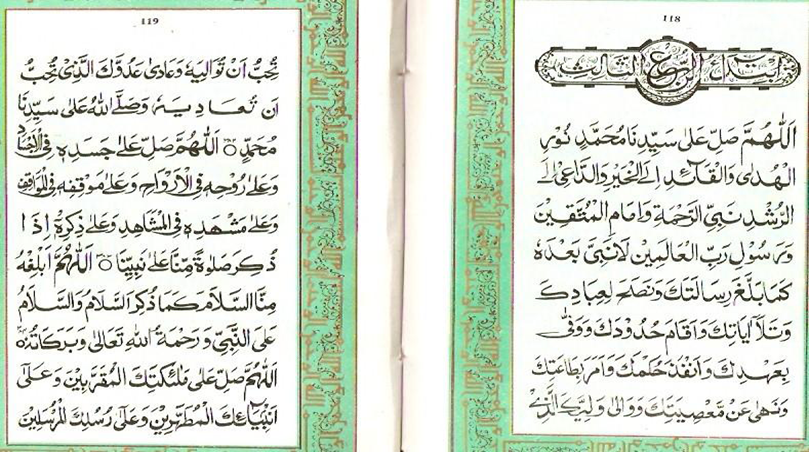 118
ابتداء الربع الثالث
اَللّٰهُمَّ صَلِّ عَلٰى سَيِّدِنَا مُحَمَّدٍ نُوْرِ
الْهُدٰى وَالْقَائِدِ اِلَى الْخَيْرِ وَالدَّاعِىْ اِلَى
الرُّشْدِ نَبِيِّ الرَّحْمَةِ وَاِمَامِ الْمُتَّقِيْنَ
وَرَسُوْلِ رَبِّ الْعَالَمِيْنَ لَا نَبِيَّ بَعْدَهٗ
كَمَا بَلَّغَ رِسَالَتَكَ وَنَصَحَ لِعِبَادِكَ
وَتَلَا اٰيَاتِكَ وَاَقَامَ حُدُوْدَكَ وَوَفّٰى
بِعَهْدِكَ وَاَنْفَذَ حُكْمَكَ وَاَمَرَ بِطَاعَتِكَ
وَنَهٰى عَنْ مَّعْصِيَتِكَ وَوَالٰى وَلِيَّكَ الَّذِيْ
119
تُحِبُّ اَنْ تُوَالِيَهٗ وَعَادٰى عَدُوَّكَ الَّذِيْ تُحِبُّ
اَنْ تُعَادِيَهٗ وَصَلَّى اللّٰهُ عَلٰى سَيِّدِنَا
مُحَمَّدٍ اَللّٰهُمَّ صَلِّ عَلٰى جَسَدِهٖ فِي الْاَجْسَادِ
وَعَلٰى رُوْحِهٖ فِي الْاَرْوَاحِ وَعَلٰى مَوْقِفِهٖ فِي الْمَوَاقِفِ
وَعَلٰى مَشْهَدِهٖ فِي الْمَشَاهِدِ وَعَلٰى ذِكْرِهٖ اِذَا
ذُكِرَ صَلٰوةً مِّنَّا عَلٰى نَبِيِّنَا اَللّٰهُمَّ اَبْلِغْهُ
مِنَّا السَّلَامَ كَمَا ذُكِرَ السَّلَامُ وَالسَّلَامُ
عَلَى النَّبِيِّ وَرَحْمَةُ اللّٰهِ تَعَالٰى وَبَرَكَاتُهٗ
اَللّٰهُمَّ صَلِّ عَلٰى مَلٰئِكَتِكَ الْمُقَرَّبِيْنَ وَعَلٰى
اَنْبِيَائِكَ الْمُطَهَّرِيْنَ وَعَلٰى رُسُلِكَ الْمُرْسَلِيْنَ